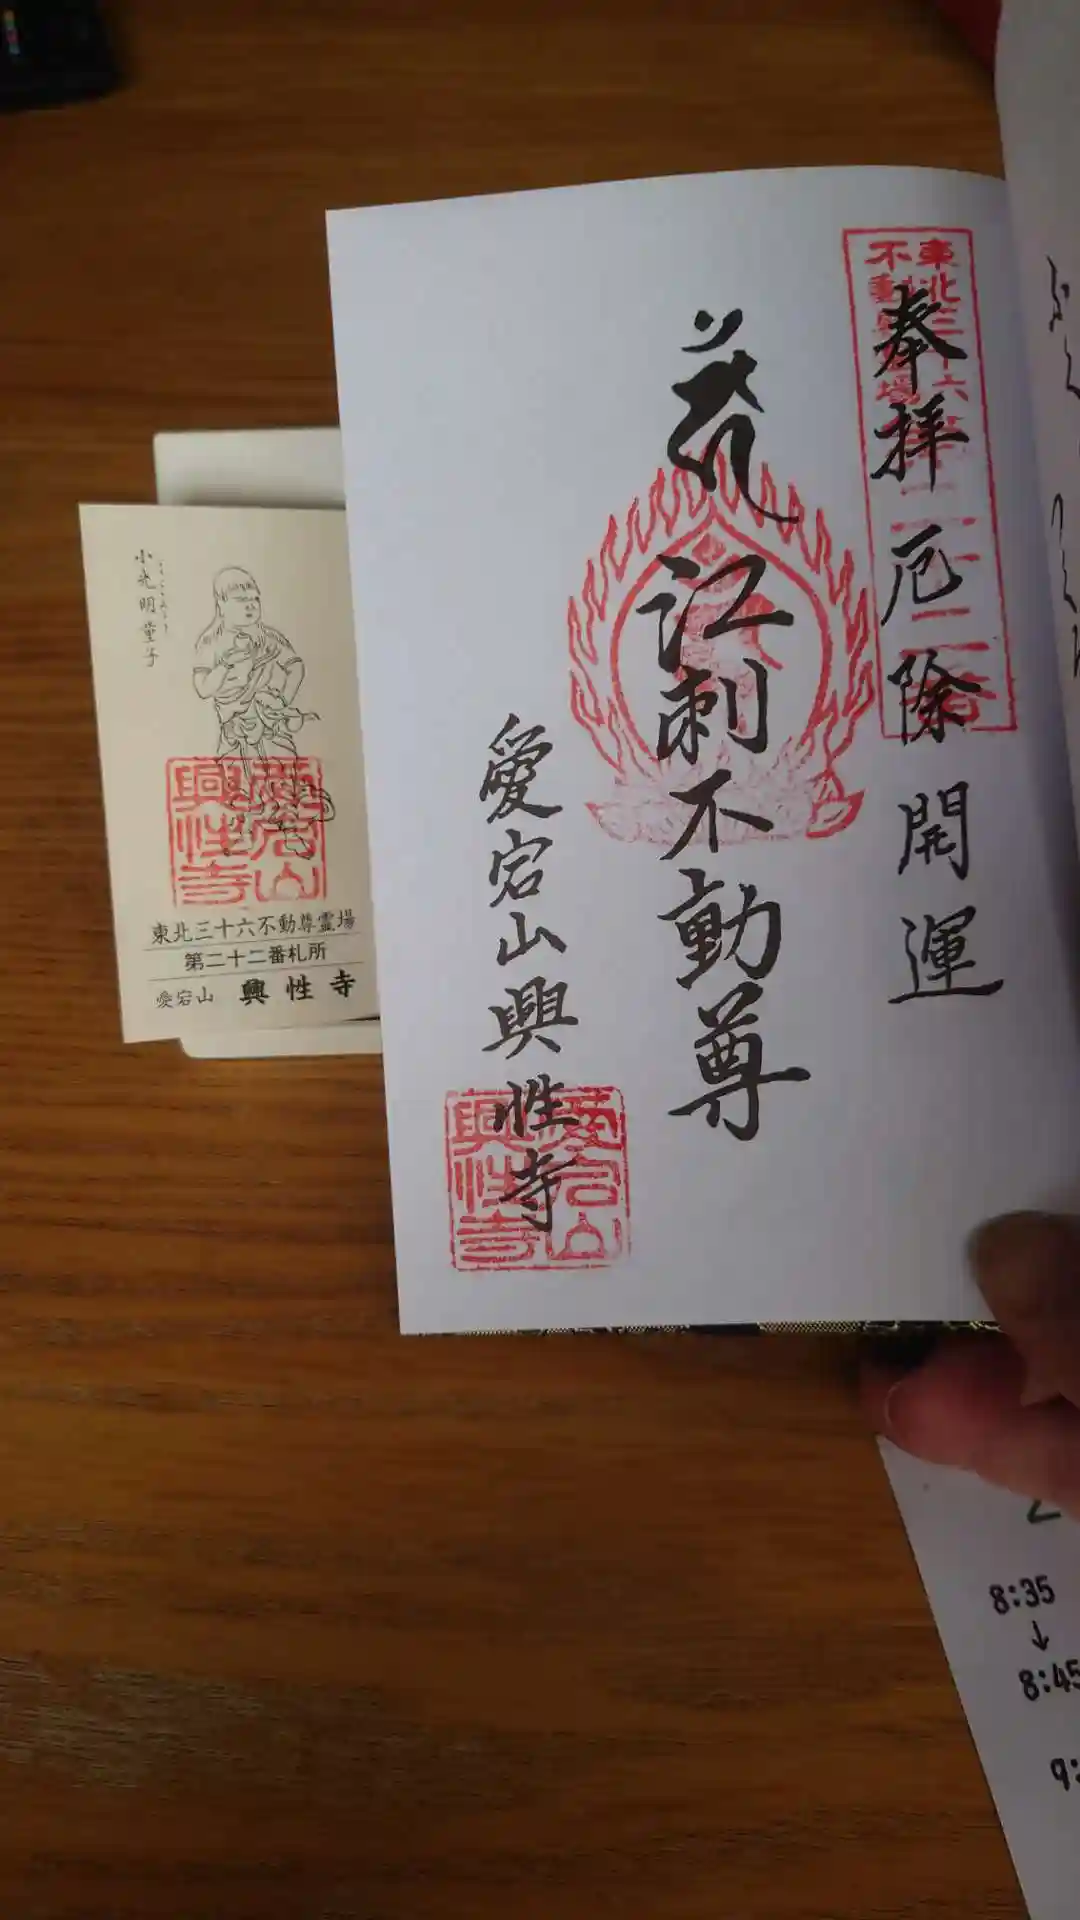 奉拝 厄除開運
東北三十六
不動尊霊場
第二十二番
江刺不動尊
愛宕山興性寺
愛宕山
興性寺
小光明童子
愛宕山
興性寺
東北三十六不動尊霊場
第二十二番札所
愛宕山 興性寺
8:35
↓
8:45
9: